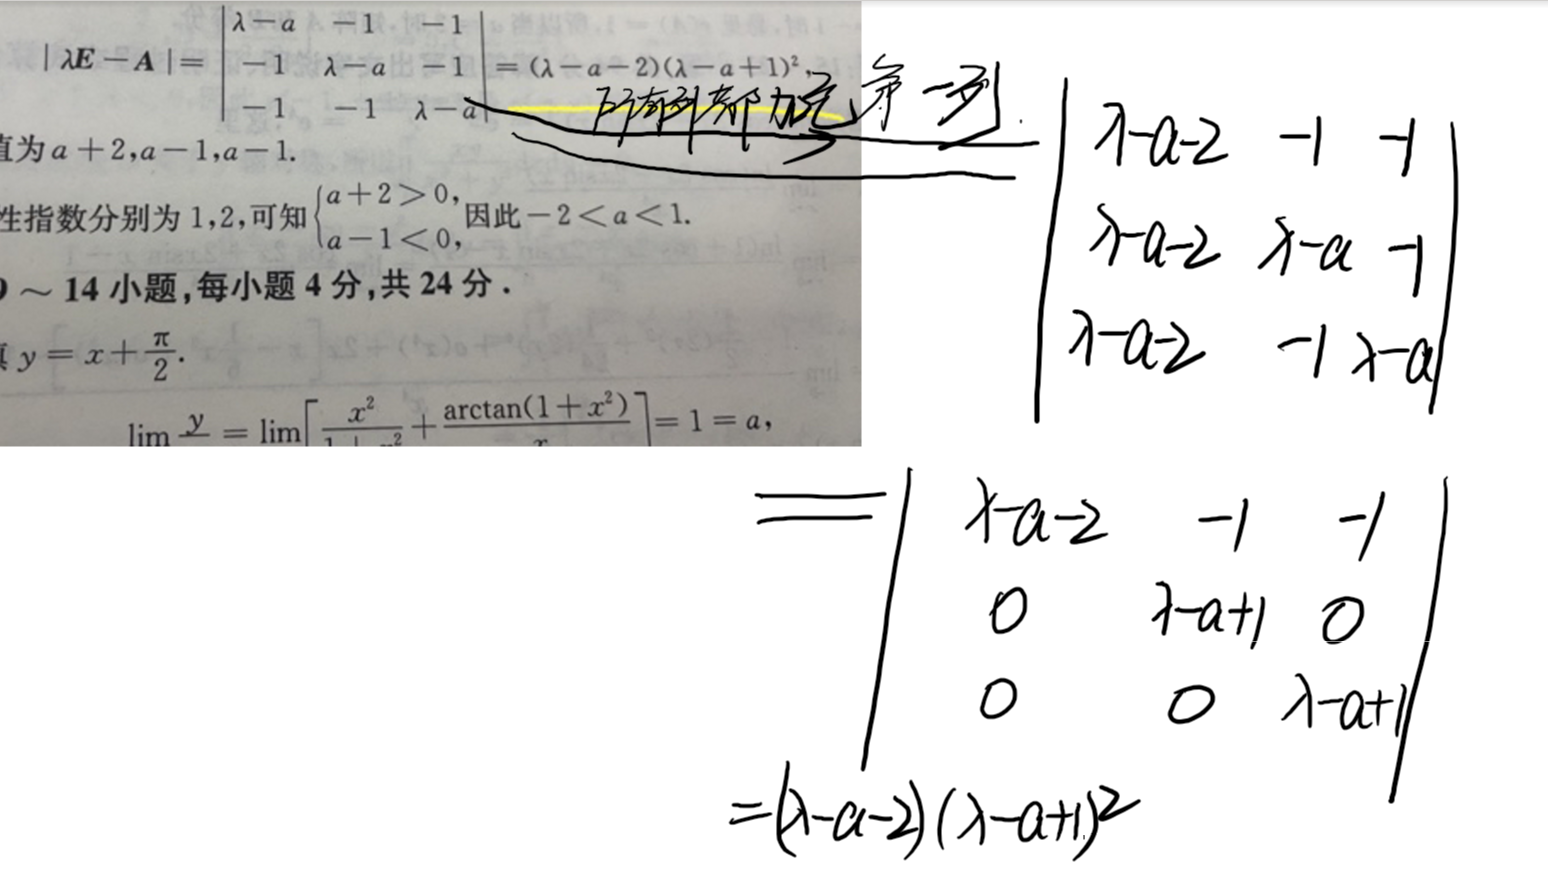 |λE-A|= |λ-a -1 -1|
|-1 λ-a -1| =(λ-a-2)(λ-a+1)²,
|-1 -1 λ-a|
所有列都加完第一列
值为a+2,a-1,a-1.
性指数分别为1,2,可知{a+2>0, a-1<0, 因此-2<a<1.
~14小题,每小题4分,共24分.
y=x+π/2.
lim y = lim[ x² + arctan(1+x²) ]=1=a,
|λ-a-2 -1 -1|
|λ-a-2 λ-a -1|
|λ-a-2 -1 λ-a|
= |λ-a-2 -1 -1|
|0 λ-a+1 0|
|0 0 λ-a+1|
=(λ-a-2)(λ-a+1)²